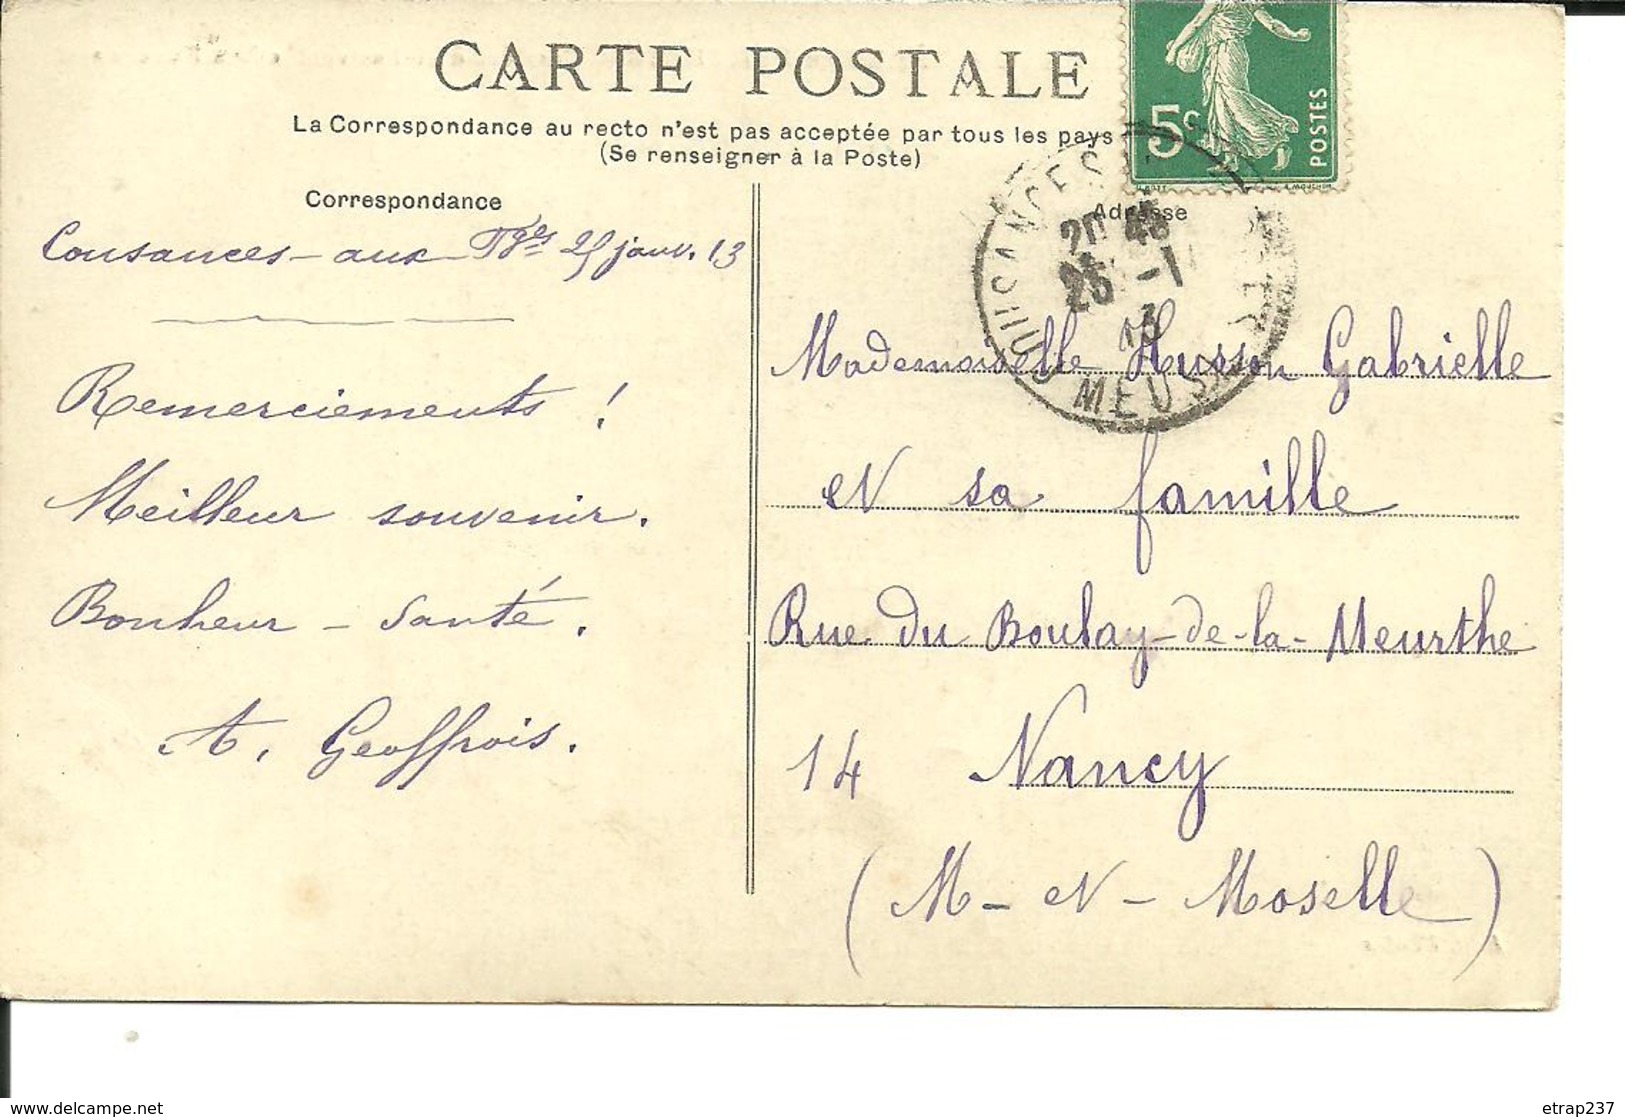 CARTE POSTALE
La Correspondance au recto n'est pas acceptée par tous les pays
(Se renseigner à la Poste)
5c
POSTES
Correspondance
Cousances-aux-Fges 25 janv. 13
Remerciements !
Meilleur souvenir.
Bonheur - Santé.
A. Geoffrois.
Adresse
COUSANCES
20 45
25 -1
13
MEUSE
Mademoiselle Husson Gabrielle
et sa famille
Rue du Boulay-de-la-Meurthe
14 Nancy
(M-et-Moselle)
www.delcampe.net
etrap237